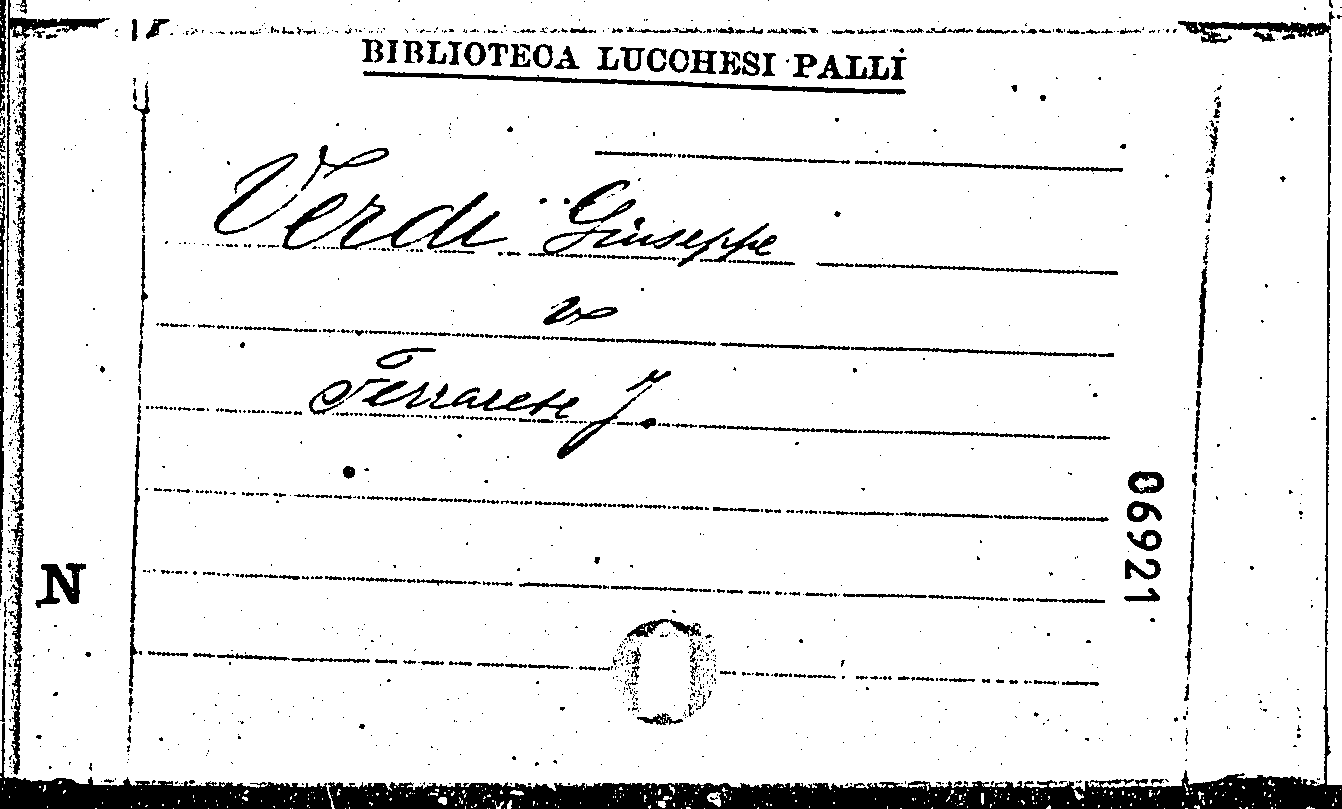 BIBLIOTECA LUCCHESI PALLI
Verdi Giuseppe
Ferrarese J.
06921
N